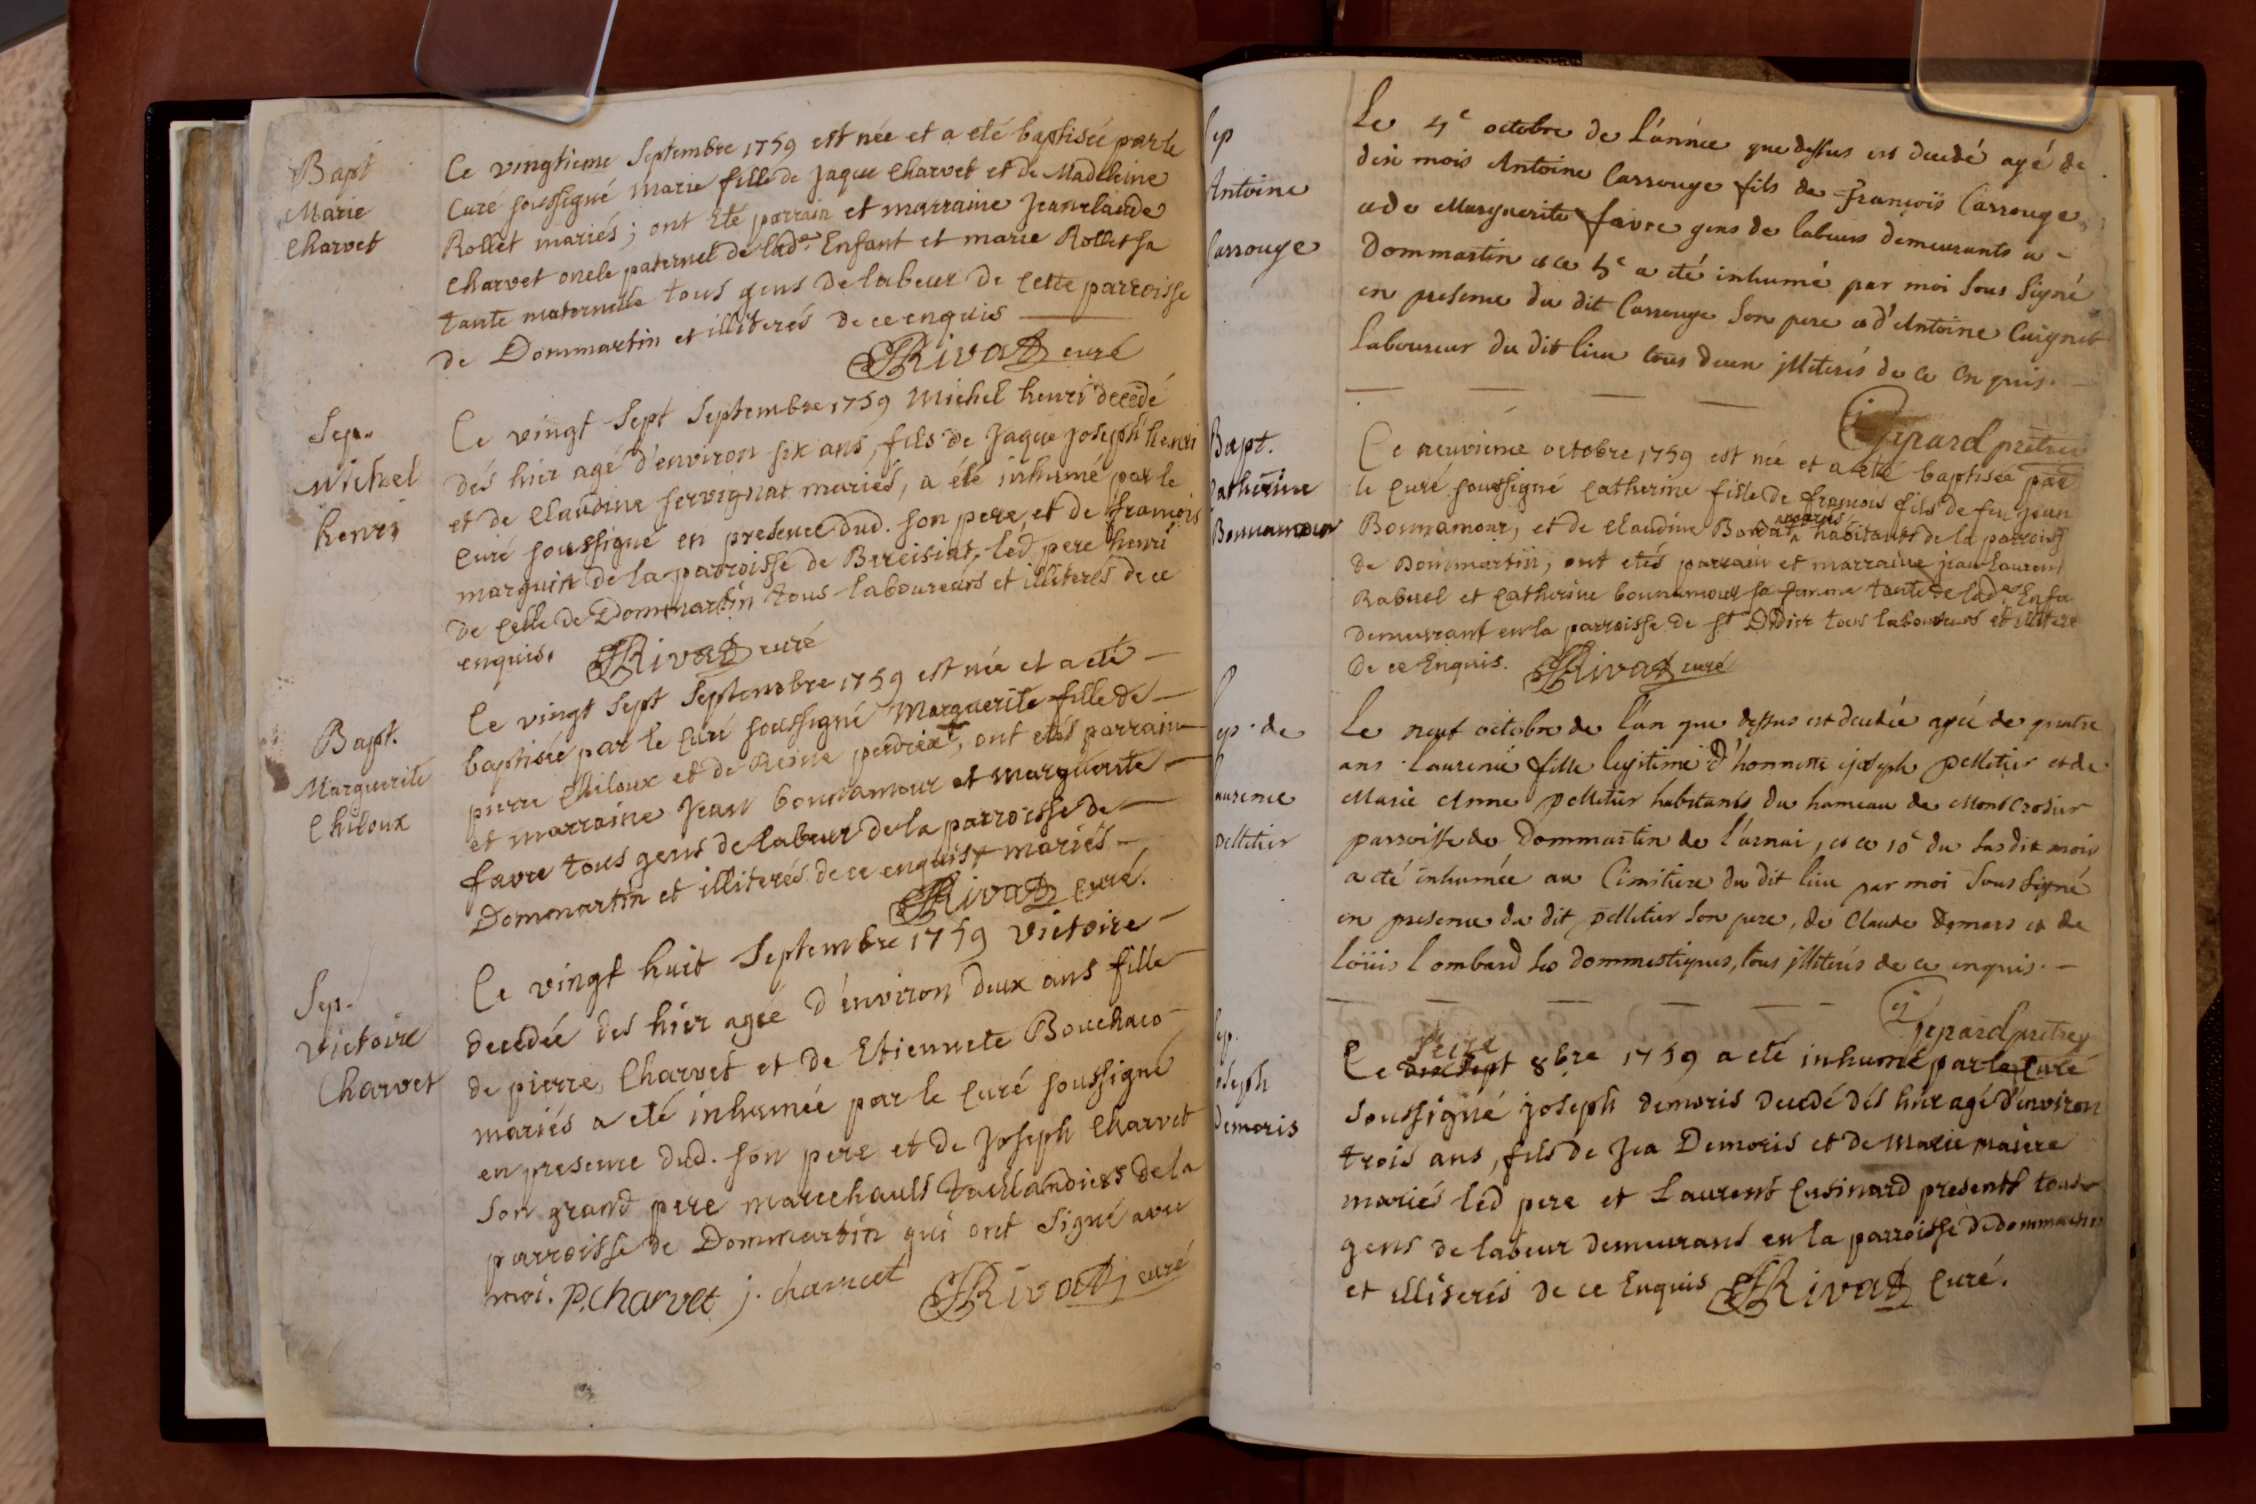 Bapt
Marie
Charvet
Ce vingtieme Septembre 1759 est née et a eté baptisée par le
Curé soussigné Marie fille de Jaque Charvet et de Madeleine
Rollet mariés; ont Eté parrain et marraine Jeanclaude
Charvet oncle paternel de lade. Enfant et marie Rollet sa
tante maternelle tous gens de labeur de Cette parroisse
de Dommartin et illiterés de ce enquis
Rivat curé
Sep.
Michel
henri
Ce vingt Sept Septembre 1759 Michel henri decedé
dés hier agé d'environ six ans, fils de Jaque joseph henri
et de Claudine servignat mariés, a été inhumé par le
Curé soussigné en presence dud. son pere, et de francois
marguin de la parroisse de Bereisiat, led. pere henri
de Celle de Dommartin tous laboureurs et illiterés de ce
enquis. Rivat curé
Bapt.
Marguerite
Chiloux
Ce vingt Sept Septembre 1759 est née et a eté
baptisée par le Curé soussigné Marguerite fille de
pierre Chiloux et de Reine perdrix, ont etés parrain
et marraine Jean bonnamour et marguerite
favre tous gens de labeur de la parroisse de
Dommartin et illiterés de ce enquis + mariés
Rivat Curé.
Sep.
Victoire
Charvet
Ce vingt huit Septembre 1759 Victoire
decedée des hier agée d'environ deux ans fille
de pierre Charvet et de Etiennete Bouchaco
mariés a eté inhumée par le Curé soussigné
en presence dud. son pere et de Joseph Charvet
son grand pere marechauls taillandiers de la
parroisse de Dommartin qui ont signé avec
moi. P. Charvet j. charvet Rivat curé
Sep
Antoine
Carrouge
Le 4e octobre de L'année que dessus est decedé agé de
dix mois Antoine Carrouge fils de François Carrouge
et de Marguerite favre gens de labeurs demeurants a
Dommartin et ce 5e a eté inhumé par moi Sous Signé
en presence du dit Carrouge Son pere et d'Antoine Cuignet
Laboureur du dit lieu tous deux jlliterés de ce Enquis.
Gepard prêtre
Bapt.
Catherine
Bonnamour
Ce neuvième octobre 1759 est née et a eté baptisée par
le Curé soussigné Catherine fille de francois fils de feu jean
Bonnamour, et de Claudine Bordat mariés habitants de la parroisse
de Dommartin, ont etés parrain et marraine jean Laurent
Rabuel et Catherine bonnamour sa femme tante de lade. Enfa
demeurant en la parroisse de St Didier tous laboureurs et illiteré
de ce Enquis. Rivat curé
Sep. de
Laurence
pelletier
Le neuf octobre de l'an que dessus est decedée agée de quatre
ans Laurence fille legitime d'honnette joseph pelletier et de
Marie Anne pelletier habitants du hameau de Montcrosier
parroisse de Dommartin de l'arnai, et ce 10e du Susdit mois
a eté inhumée au Cimitiere du dit lieu par moi Sous Signé
en presence du dit pelletier Son pere, de Claude Demars et de
Loüis Lombard Ses dommestiques, tous jlliterés de ce enquis.
Gepard prêtre
Sep.
Joseph
Demoris
Ce dix sept seize 8bre 1759 a eté inhumé par le Curé
soussigné joseph demoris decedé dés hier agé d'environ
trois ans, fils de Jea Demoris et de Marie masere
mariés led pere et Laurent Cusinard presents tous
gens de labeur demeurans en la parroisse de dommartin
et illiterés de ce Enquis Rivat Curé.